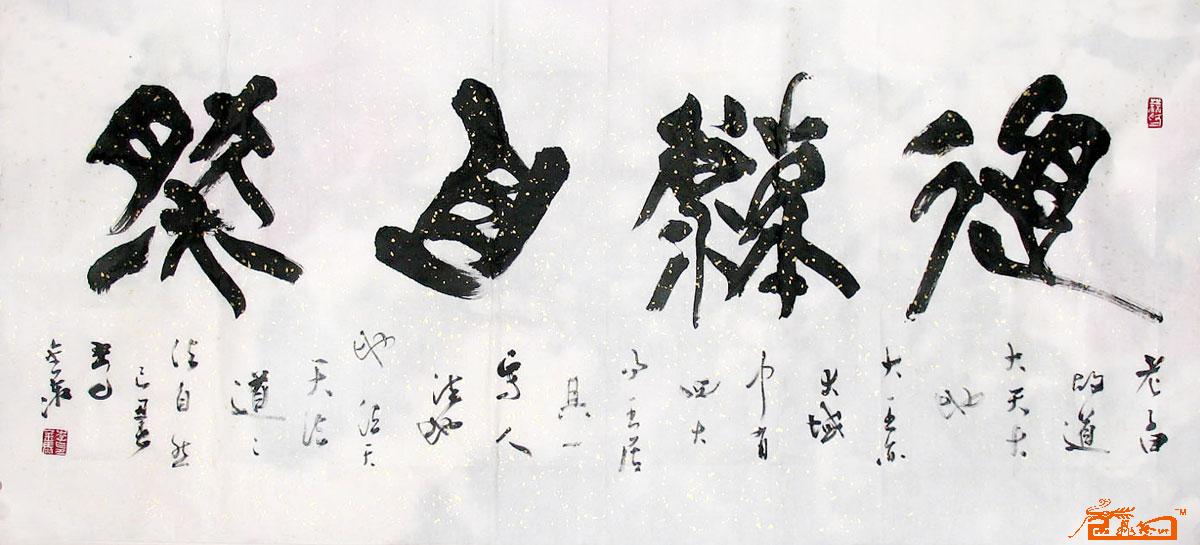 道灋自然
老子曰
故道
大天大
地
大王亦
大域
中有
四大
而王居
其一
焉人
法地
地法天
天法
道〻
法自然
己丑春